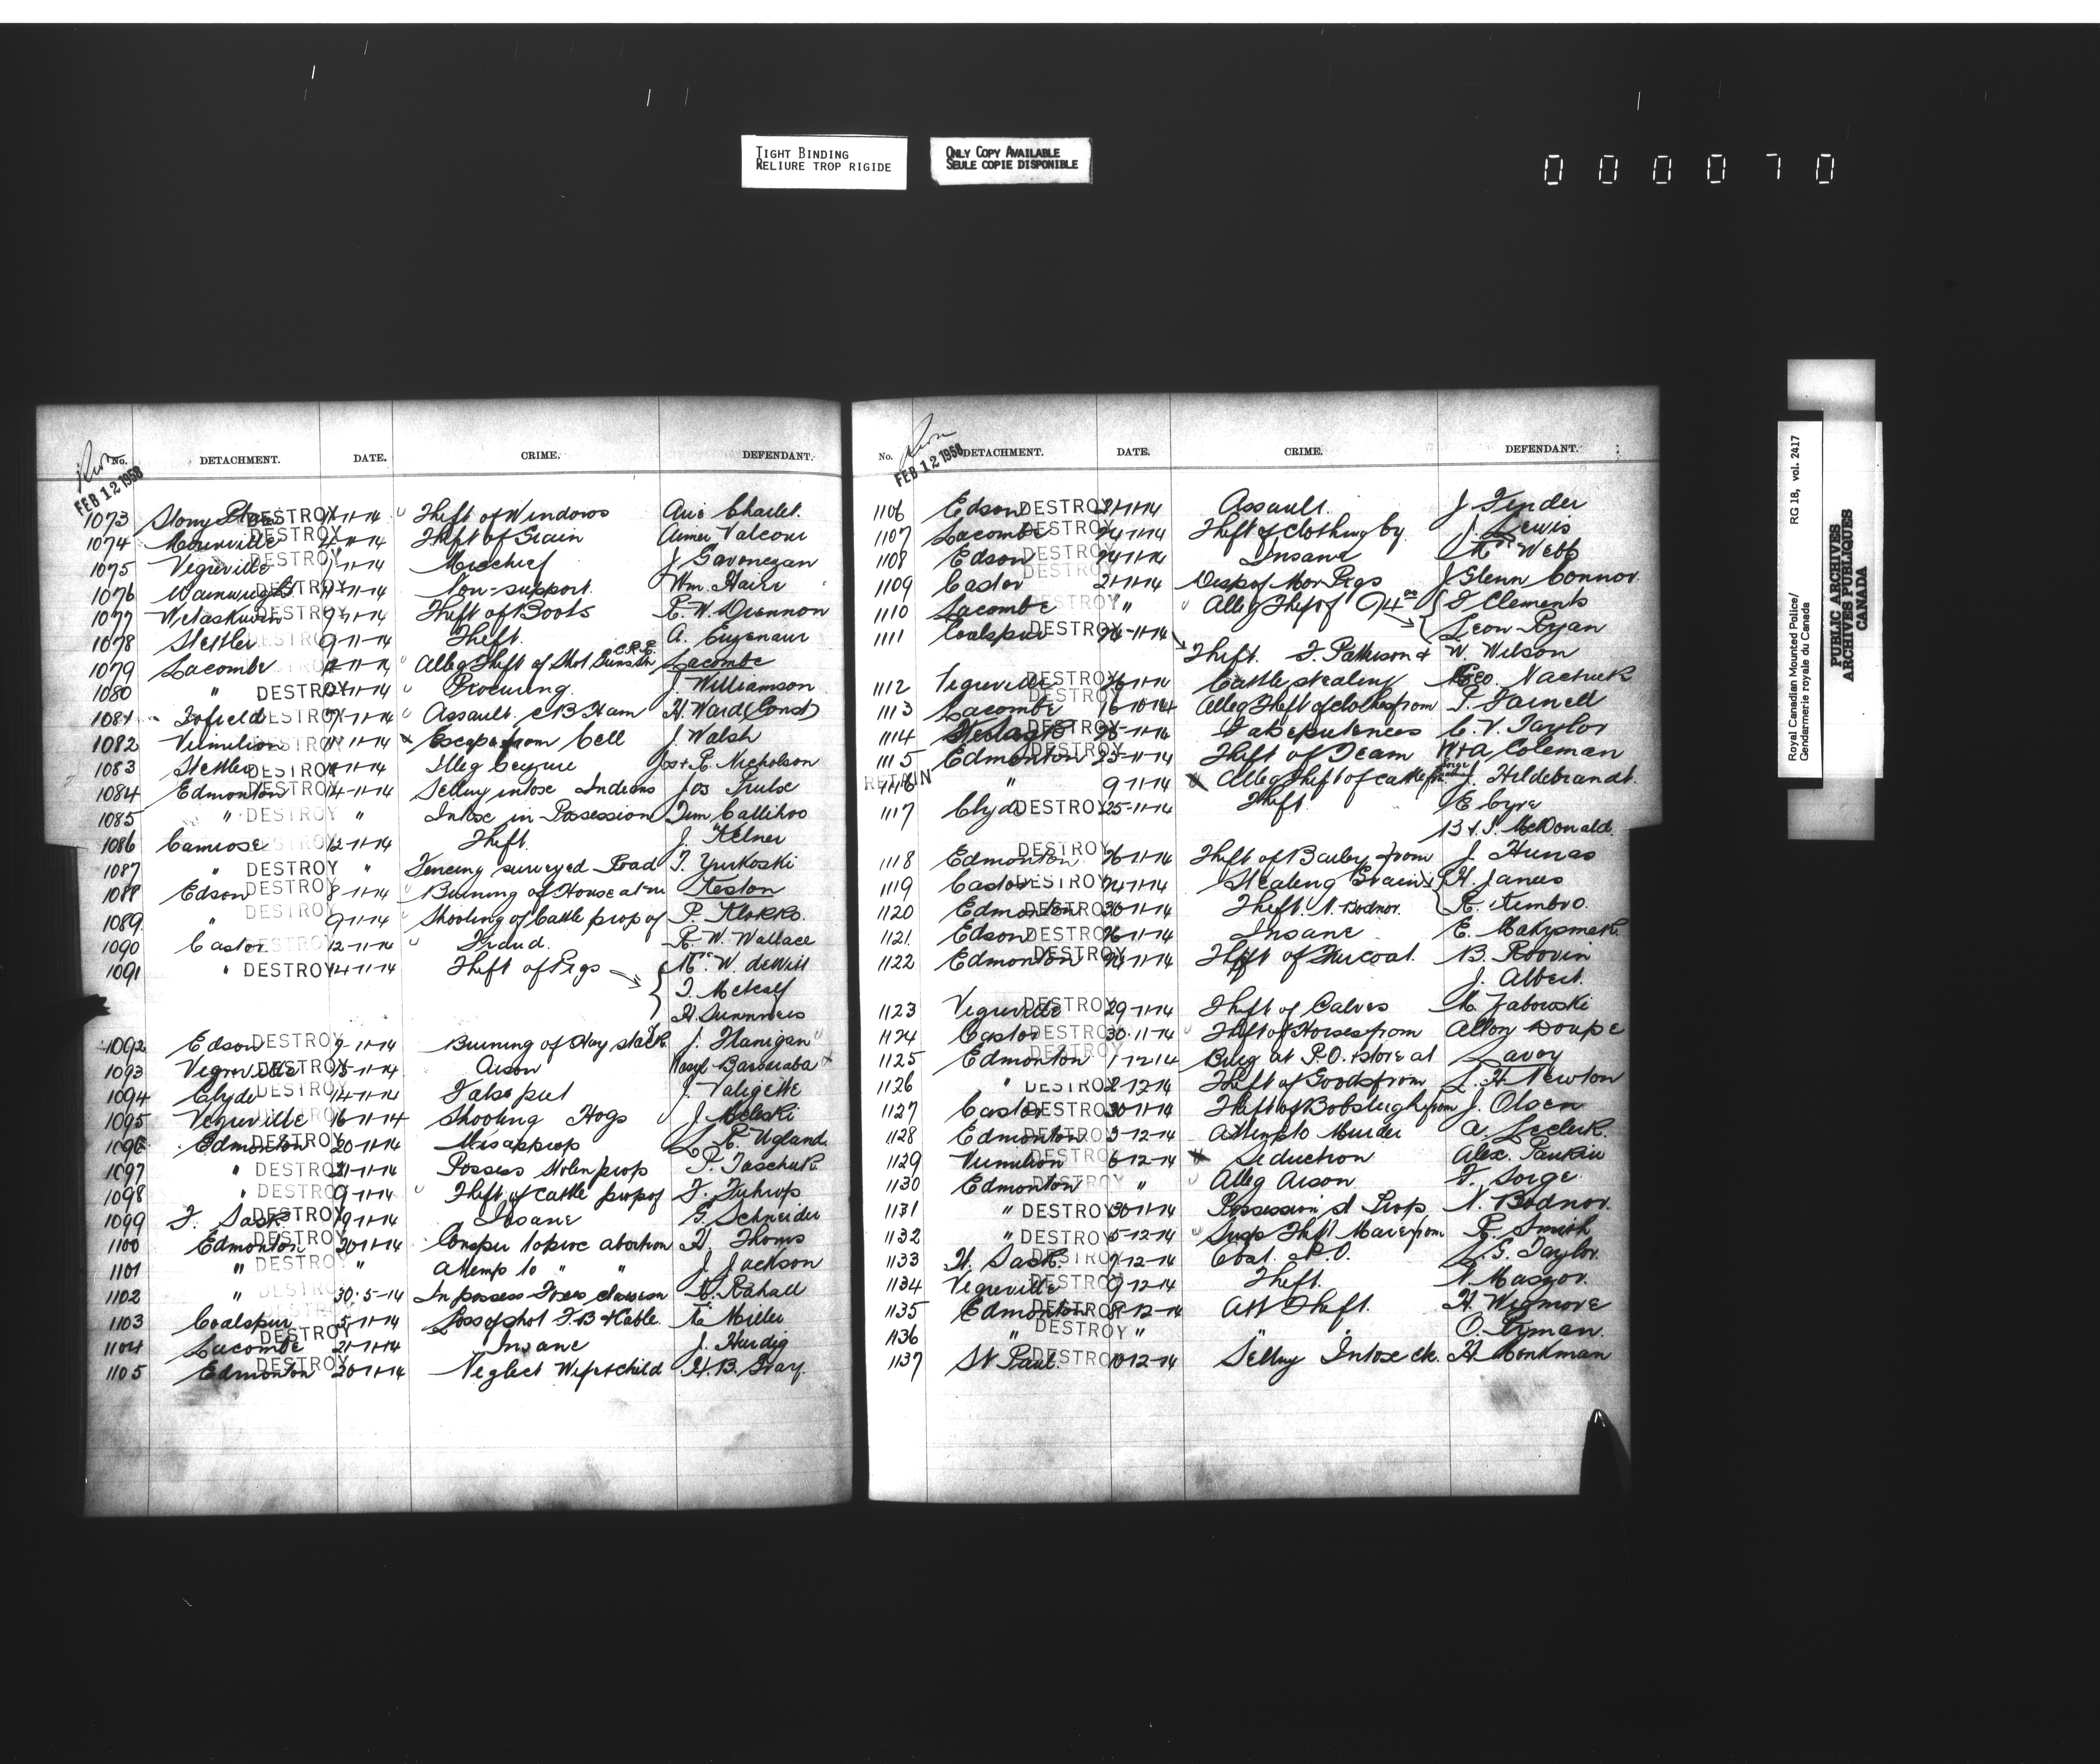 TIGHT BINDING
RELIURE TROP RIGIDE
ONLY COPY AVAILABLE
SEULE COPIE DISPONIBLE
000070
Royal Canadian Mounted Police/ RG 18, vol. 2417
Gendarmerie royale du Canada
PUBLIC ARCHIVES
ARCHIVES PUBLIQUES
CANADA
No. DETACHMENT. DATE. CRIME. DEFENDANT.
FEB 12 1958
1073 Stony DESTROY 11-14 Theft of Windows
1074 DESTROY 11-14 Theft of Grain Aimer Valcour
1075 Vegreville DESTROY 11-14 Mischief J
1076 DESTROY 11-14 Non-support. Wm. Haire
1077 Wetaskiwin DESTROY 9-11-14 Theft of Boots E. W. Drennon
1078 Stettler DESTROY 9-11-14 Theft. A.
1079 Lacombe 11-14 Alleg Theft of Shot Guns C.P.R. Lacombe
1080 " DESTROY 11-14 Procuring. J. Williamson
1081 Tofield DESTROY 11-14 Assault. C B Ham H. Ward (Const)
1082 Vermilion DESTROY 11-11-14 Escape from Cell J. Walsh
1083 Stettler DESTROY 11-14 Illeg Seizure Jos + R. Nicholson
1084 Edmonton DESTROY 14-11-14 Selling intox Indians Jos
1085 " DESTROY " Intox in Possession Tim Callihoo
1086 Camrose DESTROY 12-11-14 Theft. J. Kelner
1087 " DESTROY " Fencing surveyed Road T. Yurkoski
1088 Edson DESTROY 8-11-14 Burning of House at Keston
1089 " DESTROY 9-11-14 Shooting of Cattle prop of P. Klokko.
1090 Castor DESTROY 12-11-14 Fraud. R. W. Wallace
1091 " DESTROY 14-11-14 Theft of Pigs W. deWitt
T. Metcalf
H.
1092 Edson DESTROY 9-11-14 Burning of Hay stack J. Flanigan
1093 Vegreville DESTROY 11-14 Arson Wasyl Barbaraba
1094 Clyde DESTROY 14-11-14 False pret J. Valigette
1095 Vegreville DESTROY 16-11-14 Shooting Hogs J.
1096 Edmonton DESTROY 20-11-14 Misapprop L. R. Ugland
1097 " DESTROY 21-11-14 Possess stolen prop P. Taschuk
1098 " DESTROY 9-11-14 Theft of cattle prop of F.
1099 F. Sask. DESTROY 19-11-14 Insane G. Schneider
1100 Edmonton DESTROY 20-11-14 Conspir to proc abortion H. Thoms
1101 " DESTROY " Attemp to " " J. Jackson
1102 " DESTROY 30-5-14 In possess Foxes close sn Rahall
1103 Coalspur DESTROY 5-11-14 Loss of shot F.B & Cable. Miller
1104 Lacombe DESTROY 21-11-14 Insane J. Hurdig
1105 Edmonton DESTROY 20-11-14 Neglect Wife & child H. B. Gray.
No. DETACHMENT. DATE. CRIME. DEFENDANT.
FEB 12 1958
1106 Edson DESTROY 21-11-14 Assault. J. Fender
1107 Lacombe DESTROY 24-11-14 Theft of Clothing by J. Lewis
1108 Edson DESTROY 24-11-14 Insane Webb
1109 Castor DESTROY 21-11-14 Disp of Mor Pigs J Glenn Connor.
1110 Lacombe DESTROY " Alleg Theft of 94 00 F Clements
1111 Coalspur DESTROY 24-11-14 Leon Ryan
Theft. F. Patterson + W. Wilson
1112 Vegreville DESTROY 26-11-14 Cattle stealing Geo. Nactuck
1113 Lacombe DESTROY 16-10-14 Alleg Theft of clothes from T. Farnell
1114 DESTROY 25-11-14 False pretences C. V. Taylor
1115 Edmonton DESTROY 23-11-14 Theft of Team W+A Coleman
1116 RETAIN " 9-11-14 Alleg Theft of cattle J. Hildebrandt.
1117 Clyde DESTROY 25-11-14 Theft. E. Cyre
B + S. McDonald.
1118 Edmonton DESTROY 26-11-14 Theft of Barley from J. Hunas
1119 Castor DESTROY 24-11-14 Stealing Grain H. Janes
1120 Edmonton DESTROY 30-11-14 Theft. N. Bodnor. R. Kembro.
1121 Edson DESTROY 26-11-14 Insane E.
1122 Edmonton DESTROY 24-11-14 Theft of Fur coat. B. Roovin
J. Albert.
1123 Vegreville DESTROY 29-11-14 Theft of Calves M. Jabowski
1124 Castor DESTROY 30-11-14 Theft of Horses from Alton Doupe
1125 Edmonton DESTROY 1-12-14 Burg at P.O. & store at Savoy
1126 " DESTROY 2-12-14 Theft of Goods from L. H. Newton
1127 Castor DESTROY 30-11-14 Theft of Bobsleigh from J. Olsen
1128 Edmonton DESTROY 3-12-14 Attemp to Murder A. Leclerk.
1129 Vermilion DESTROY 6-12-14 Seduction Alex.
1130 Edmonton DESTROY " Alleg Arson. F. Sorge
1131 " DESTROY 30-11-14 Possession st Prop. N. Bodnor.
1132 " DESTROY 5-12-14 Susp Theft Mare from R. Smith
1133 DESTROY 7-12-14 L. G. Taylor.
1134 Vegreville DESTROY 9-12-14 Theft. N. Maszor.
1135 Edmonton DESTROY 8-12-14 Att Theft. H. Wigmore
1136 " DESTROY " " " O. Pyman.
1137 St Paul. DESTROY 10-12-14 Selling Intox etc. H Monkman